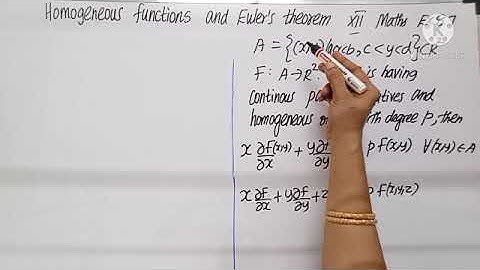 Homogeneous functions and Euler's theorem XII Maths
A = {(x, a<x<b, c<y<d} ⊂ R
F: A→R². is having
continous and
homogeneous degree P, then
x ∂F(x,y)/∂x + y ∂F/∂y P F(x,y) ∀(x,y)∈A
x ∂F/∂x + y ∂F/∂y + z P F(x,y,z)